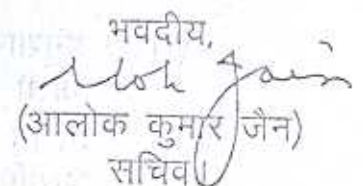 भवदीय,
Alok Jain
(आलोक कुमार जैन)
सचिव